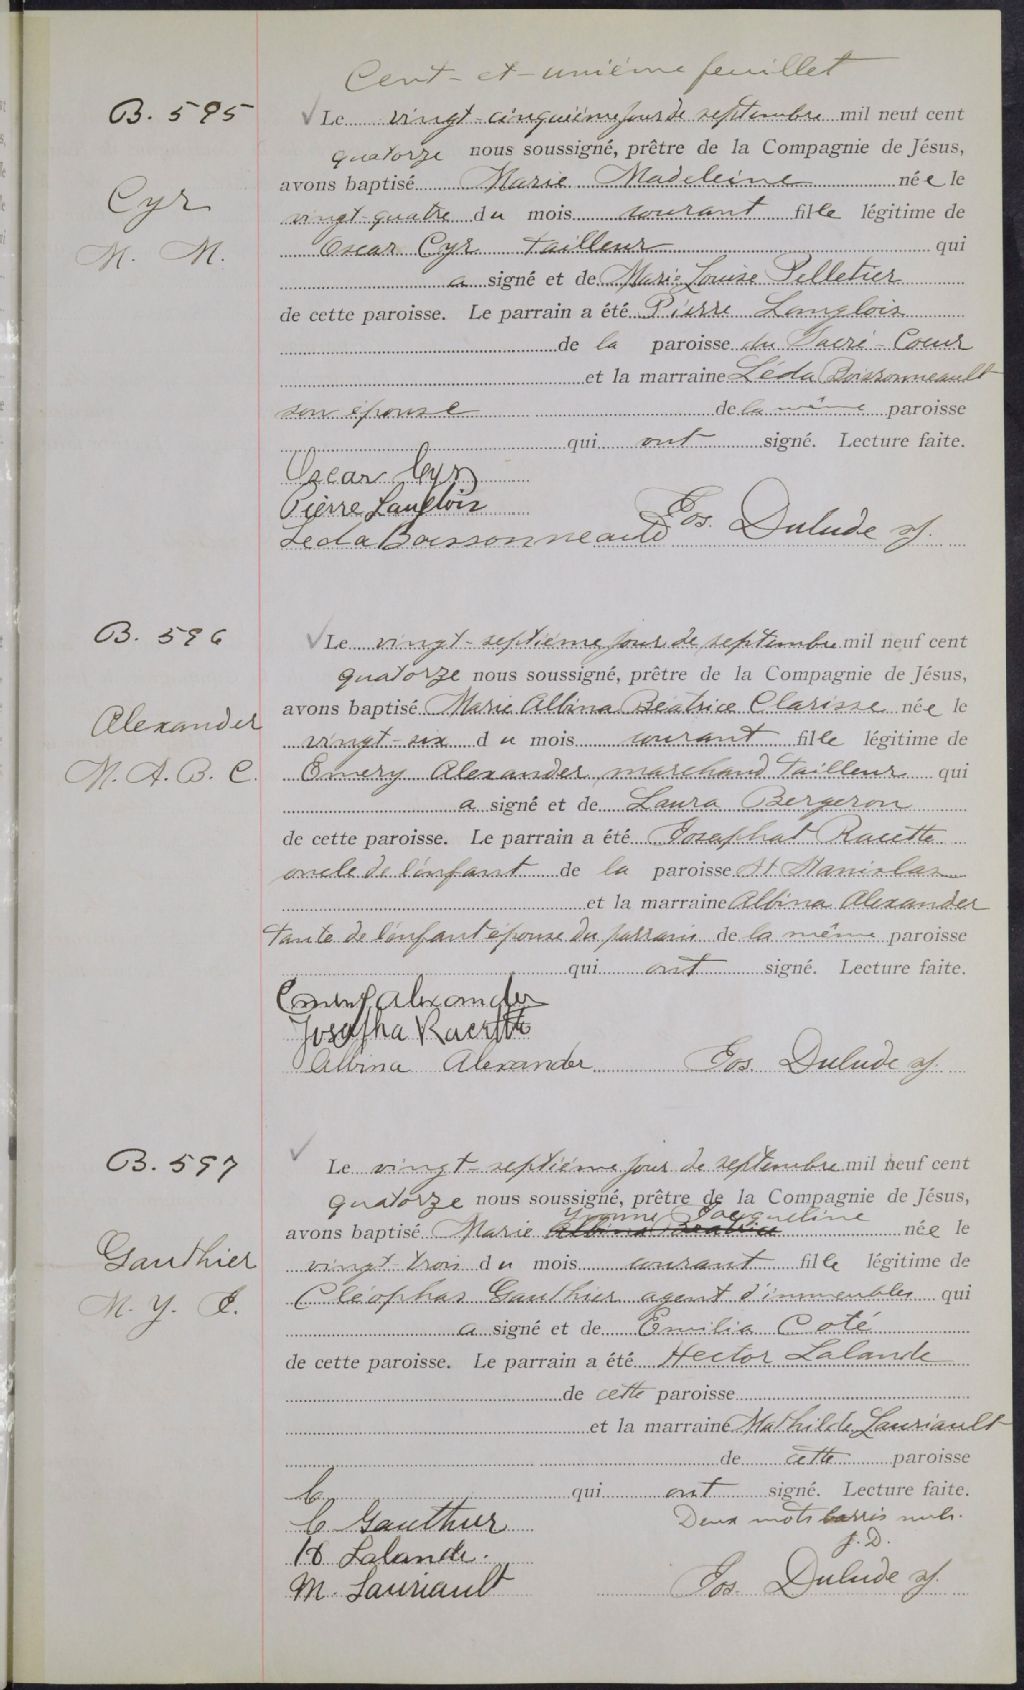 Cent-et-unième feuillet
B. 595
Cyr
M. M.
Le vingt-cinquième jour de septembre mil neuf cent
quatorze nous soussigné, prêtre de la Compagnie de Jésus,
avons baptisé Marie Madeleine née le
vingt-quatre du mois courant fille légitime de
Oscar Cyr tailleur qui
a signé et de Marie-Louise Pelletier
de cette paroisse. Le parrain a été Pierre Langlois
de la paroisse du Sacré-Coeur
et la marraine Léda Boissonneault
son épouse de la même paroisse
qui ont signé. Lecture faite.
Oscar Cyr
Pierre Langlois
Leda Boissonneault Jos. Dulude sj.
B. 596
Alexander
M. A. B. C.
Le vingt-septième jour de septembre mil neuf cent
quatorze nous soussigné, prêtre de la Compagnie de Jésus,
avons baptisé Marie Albina Béatrice Clarisse née le
vingt-six du mois courant fille légitime de
Emery Alexander, marchand tailleur qui
a signé et de Laura Bergeron
de cette paroisse. Le parrain a été Josaphat Racette
oncle de l'enfant de la paroisse St Stanislas
et la marraine Albina Alexander
tante de l'enfant épouse du parrain de la même paroisse
qui ont signé. Lecture faite.
Emery Alexander
Josapha Racette
Albina Alexander Jos. Dulude sj.
B. 597
Gauthier
M. Y. J.
Le vingt-septième jour de septembre mil neuf cent
quatorze nous soussigné, prêtre de la Compagnie de Jésus,
Yvonne Jacqueline
avons baptisé Marie Albina Béatrice née le
vingt-trois du mois courant fille légitime de
Cléophas Gauthier agent d'immeubles qui
a signé et de Emilia Coté
de cette paroisse. Le parrain a été Hector Lalande
de cette paroisse
et la marraine Mathilde Lauriault
de cette paroisse
C qui ont signé. Lecture faite.
C Gauthier Deux mots barrés nuls.
J. D.
H Lalande.
M. Lauriault Jos. Dulude sj.